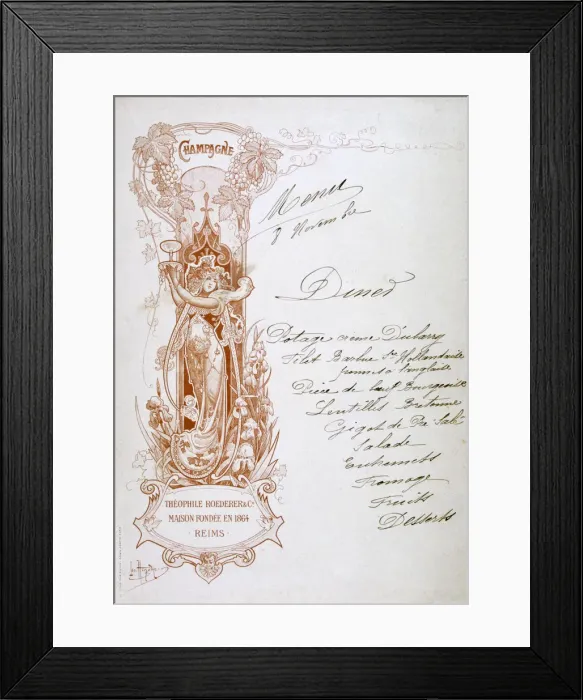 CHAMPAGNE
Menu
8 Novembre
Diner
Potage crème Dubarry
Filet Barbue Sce Hollandaise
pommes à l'anglaise
Pièce de bœuf Bourgeoise
Lentilles Bretonne
Gigot de Pré Salé
Salade
Entremets
Fromage
Fruits
Desserts
THÉOPHILE ROEDERER & Cº
MAISON FONDÉE EN 1864
· REIMS ·